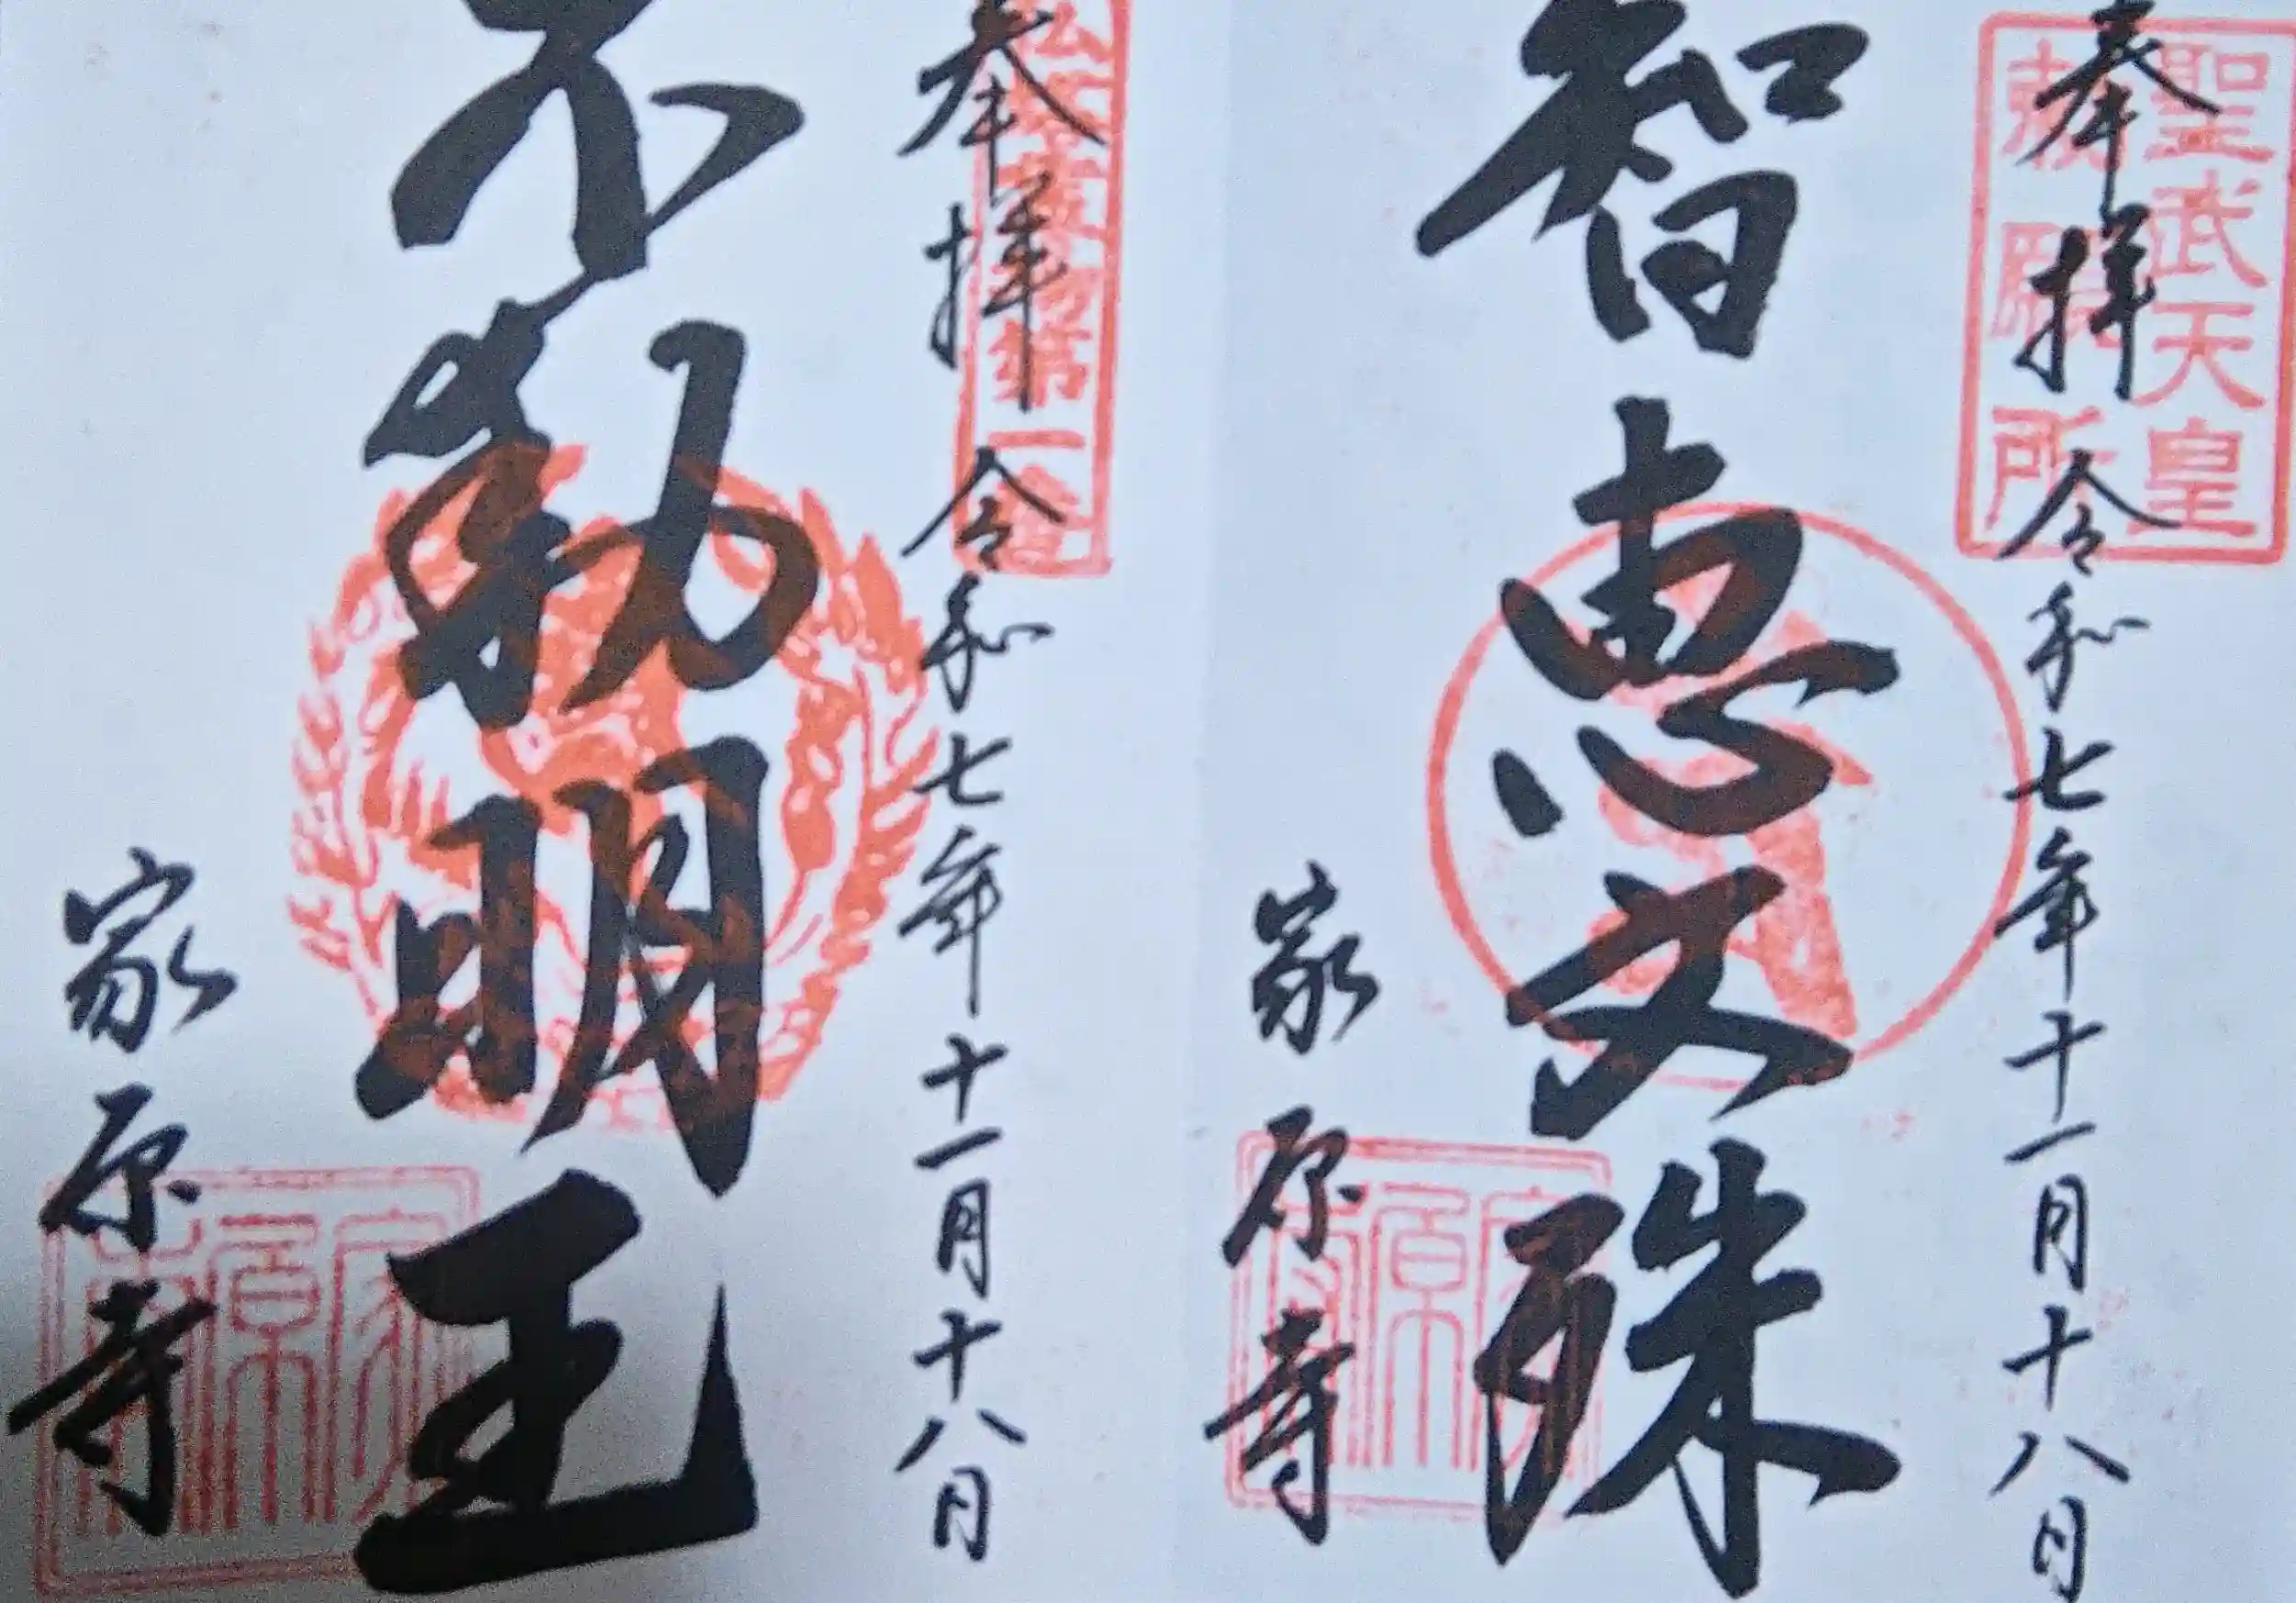 聖武天皇
勅願所
奉拝 令和七年十一月十八日
智恵文殊
家原寺
奉拝 令和七年十一月十八日
不動明王
家原寺